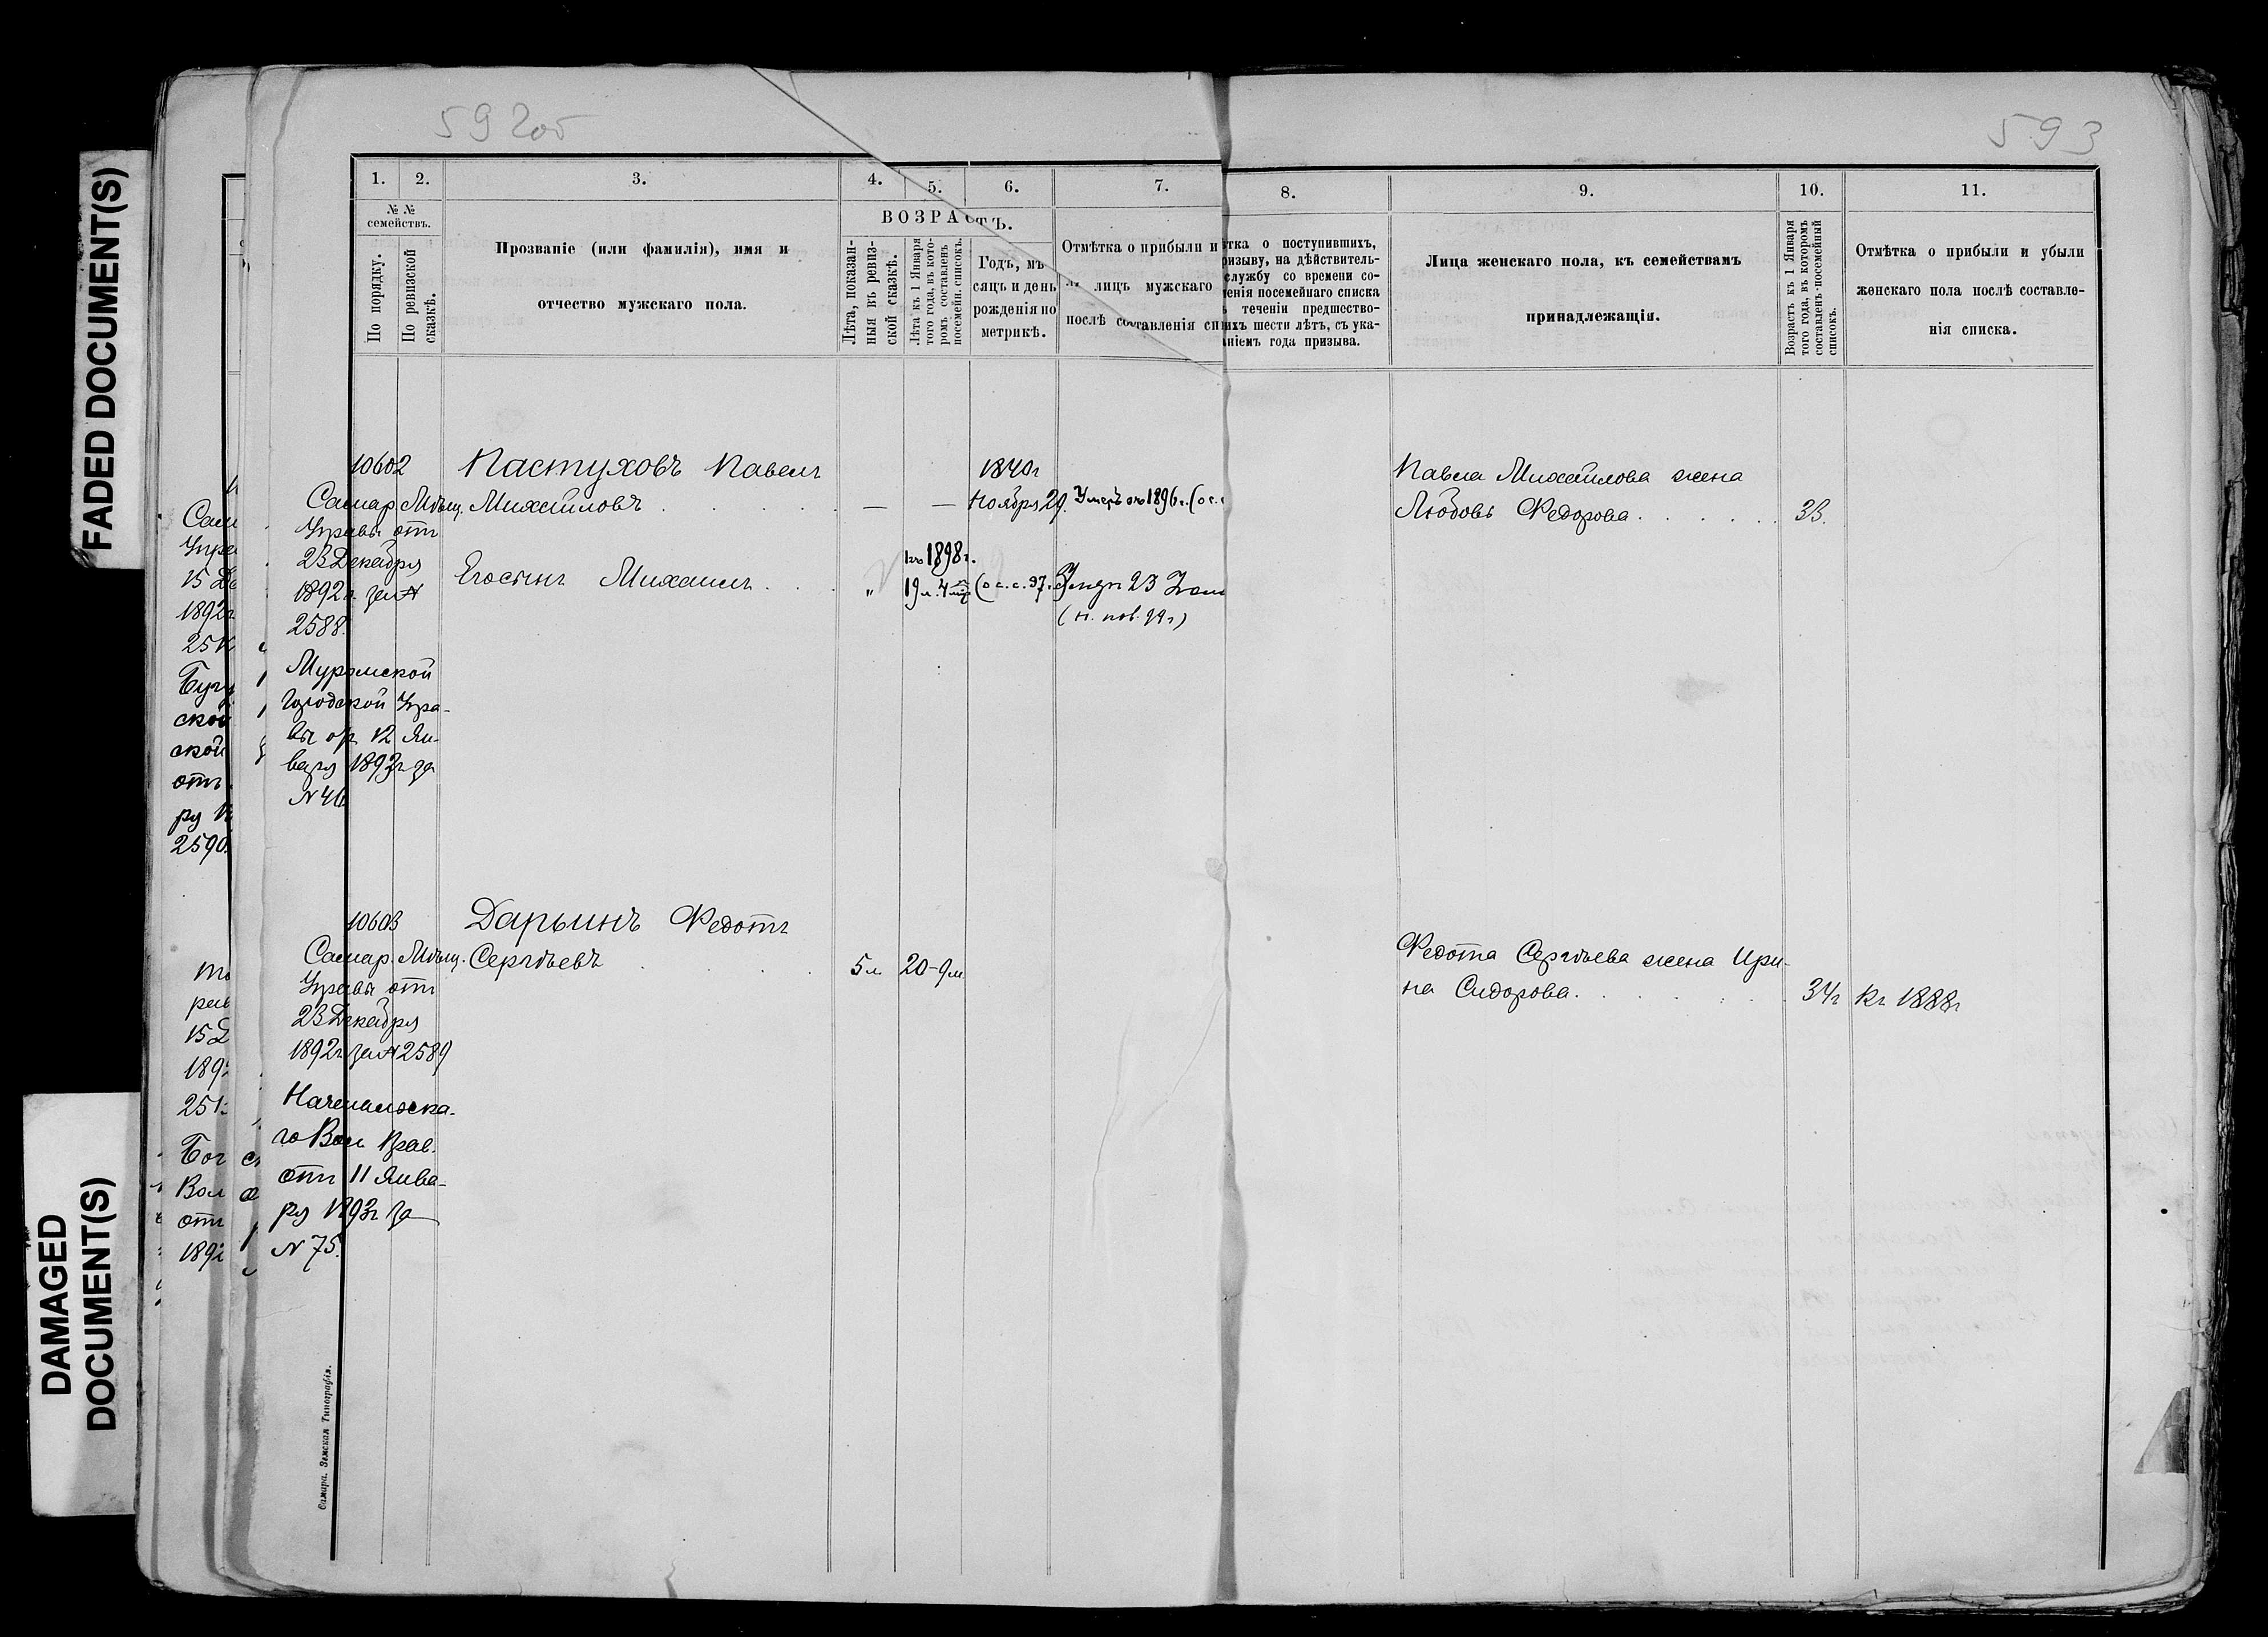 FADED DOCUMENT(S)
DAMAGED
DOCUMENT(S)
592об
593
1.
2.
3.
4.
5.
6.
7.
8.
9.
10.
11.
№ №
семействъ.
По порядку.
По ревизской
сказкѣ.
Прозваніе (или фамилія), имя и
отчество мужскаго пола.
ВОЗРАСТЪ.
Лѣта, показан-
ныя въ ревиз-
ской сказкѣ.
Лѣта къ 1 Января
того года, въ кото-
ромъ составленъ
посемейн. списокъ.
Годъ, мѣ-
сяцъ и день
рожденія по
метрикѣ.
Отмѣтка о прибыли и
лицъ мужскаго
послѣ составленія сп
тка о поступившихъ,
ризыву, на дѣйствитель-
службу со времени со-
енія посемейнаго списка
теченіи предшество-
ихъ шести лѣтъ, съ ука-
ніемъ года призыва.
Лица женскаго пола, къ семействамъ
принадлежащія.
Возрастъ къ 1 Января
того года, въ которомъ
составленъ посемейный
списокъ.
Отмѣтка о прибыли и убыли
женскаго пола послѣ составле-
нія списка.
10602
Самар. Мѣщ.
Управы отъ
23 Декабря
1892г. за №
2588.
Муромской
Городской Упра-
вы от 12 Ян-
варя 1893г за
№ 46
Пастуховъ Павелъ
Михайловъ
— —
1840г
Ноября 29.
Умеръ въ 1896г. (о с. с
Егосынъ Михаилъ
"
къ 1898г.
19 л. 4 мѣ
(о с. с. 97.
Умеръ 23
(н. нов. 99г)
Павла Михайлова жена
Любовь Федорова
33.
10603
Самар. Мѣщ.
Управы отъ
23 Декабря
1892г за № 2589
го Вол Прав.
отъ 11 Янва-
ря 1893г за
№ 75.
Дарьинъ Федотъ
Сергѣевъ
5 л
20-9м
Федота Сергѣева жена Ири-
на Сидорова
34г
Къ 1888г
Самара. Земская Типографія.
Сам
Упра
15 Де
1892г
251
Бугу
ской
ской
отъ
ря
2590.
15 Д
189
251
Бог
Вол
отъ
1892